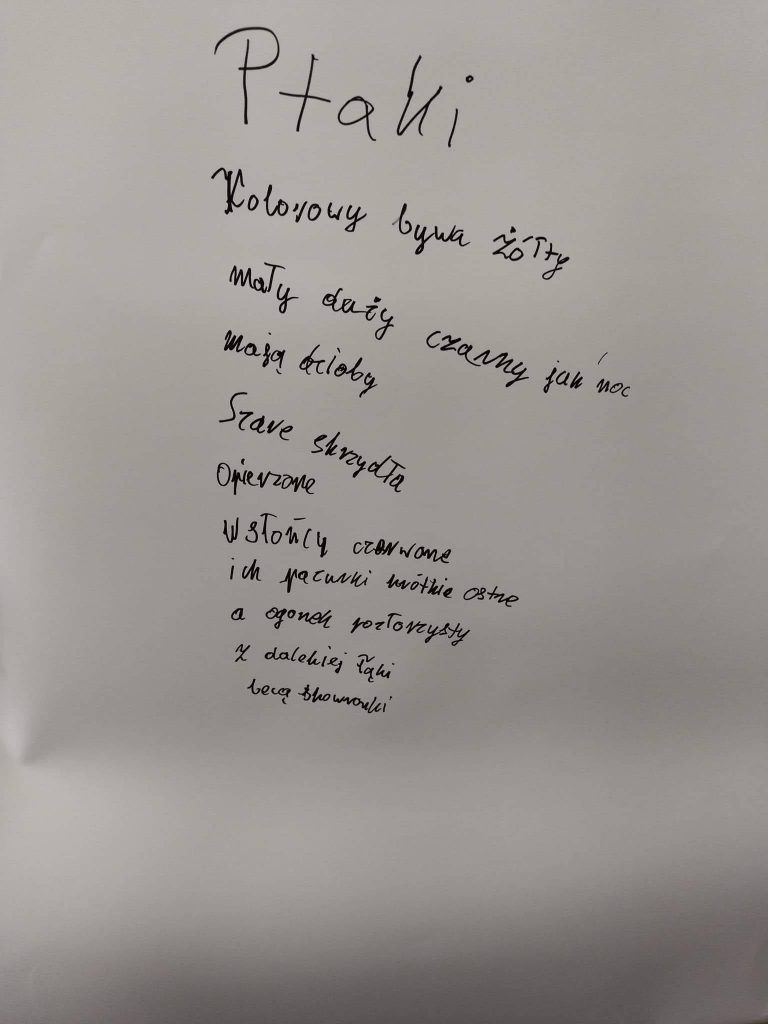 Ptaki
Kolorowy bywa żółty
mały duży czarny jak noc
mają dzioby
Szare skrzydła
Opierzone
W słońcu czerwone
ich pazurki krótkie ostre
a ogonek pozłorzysty
z dalekiej łąki
lecą skowronki